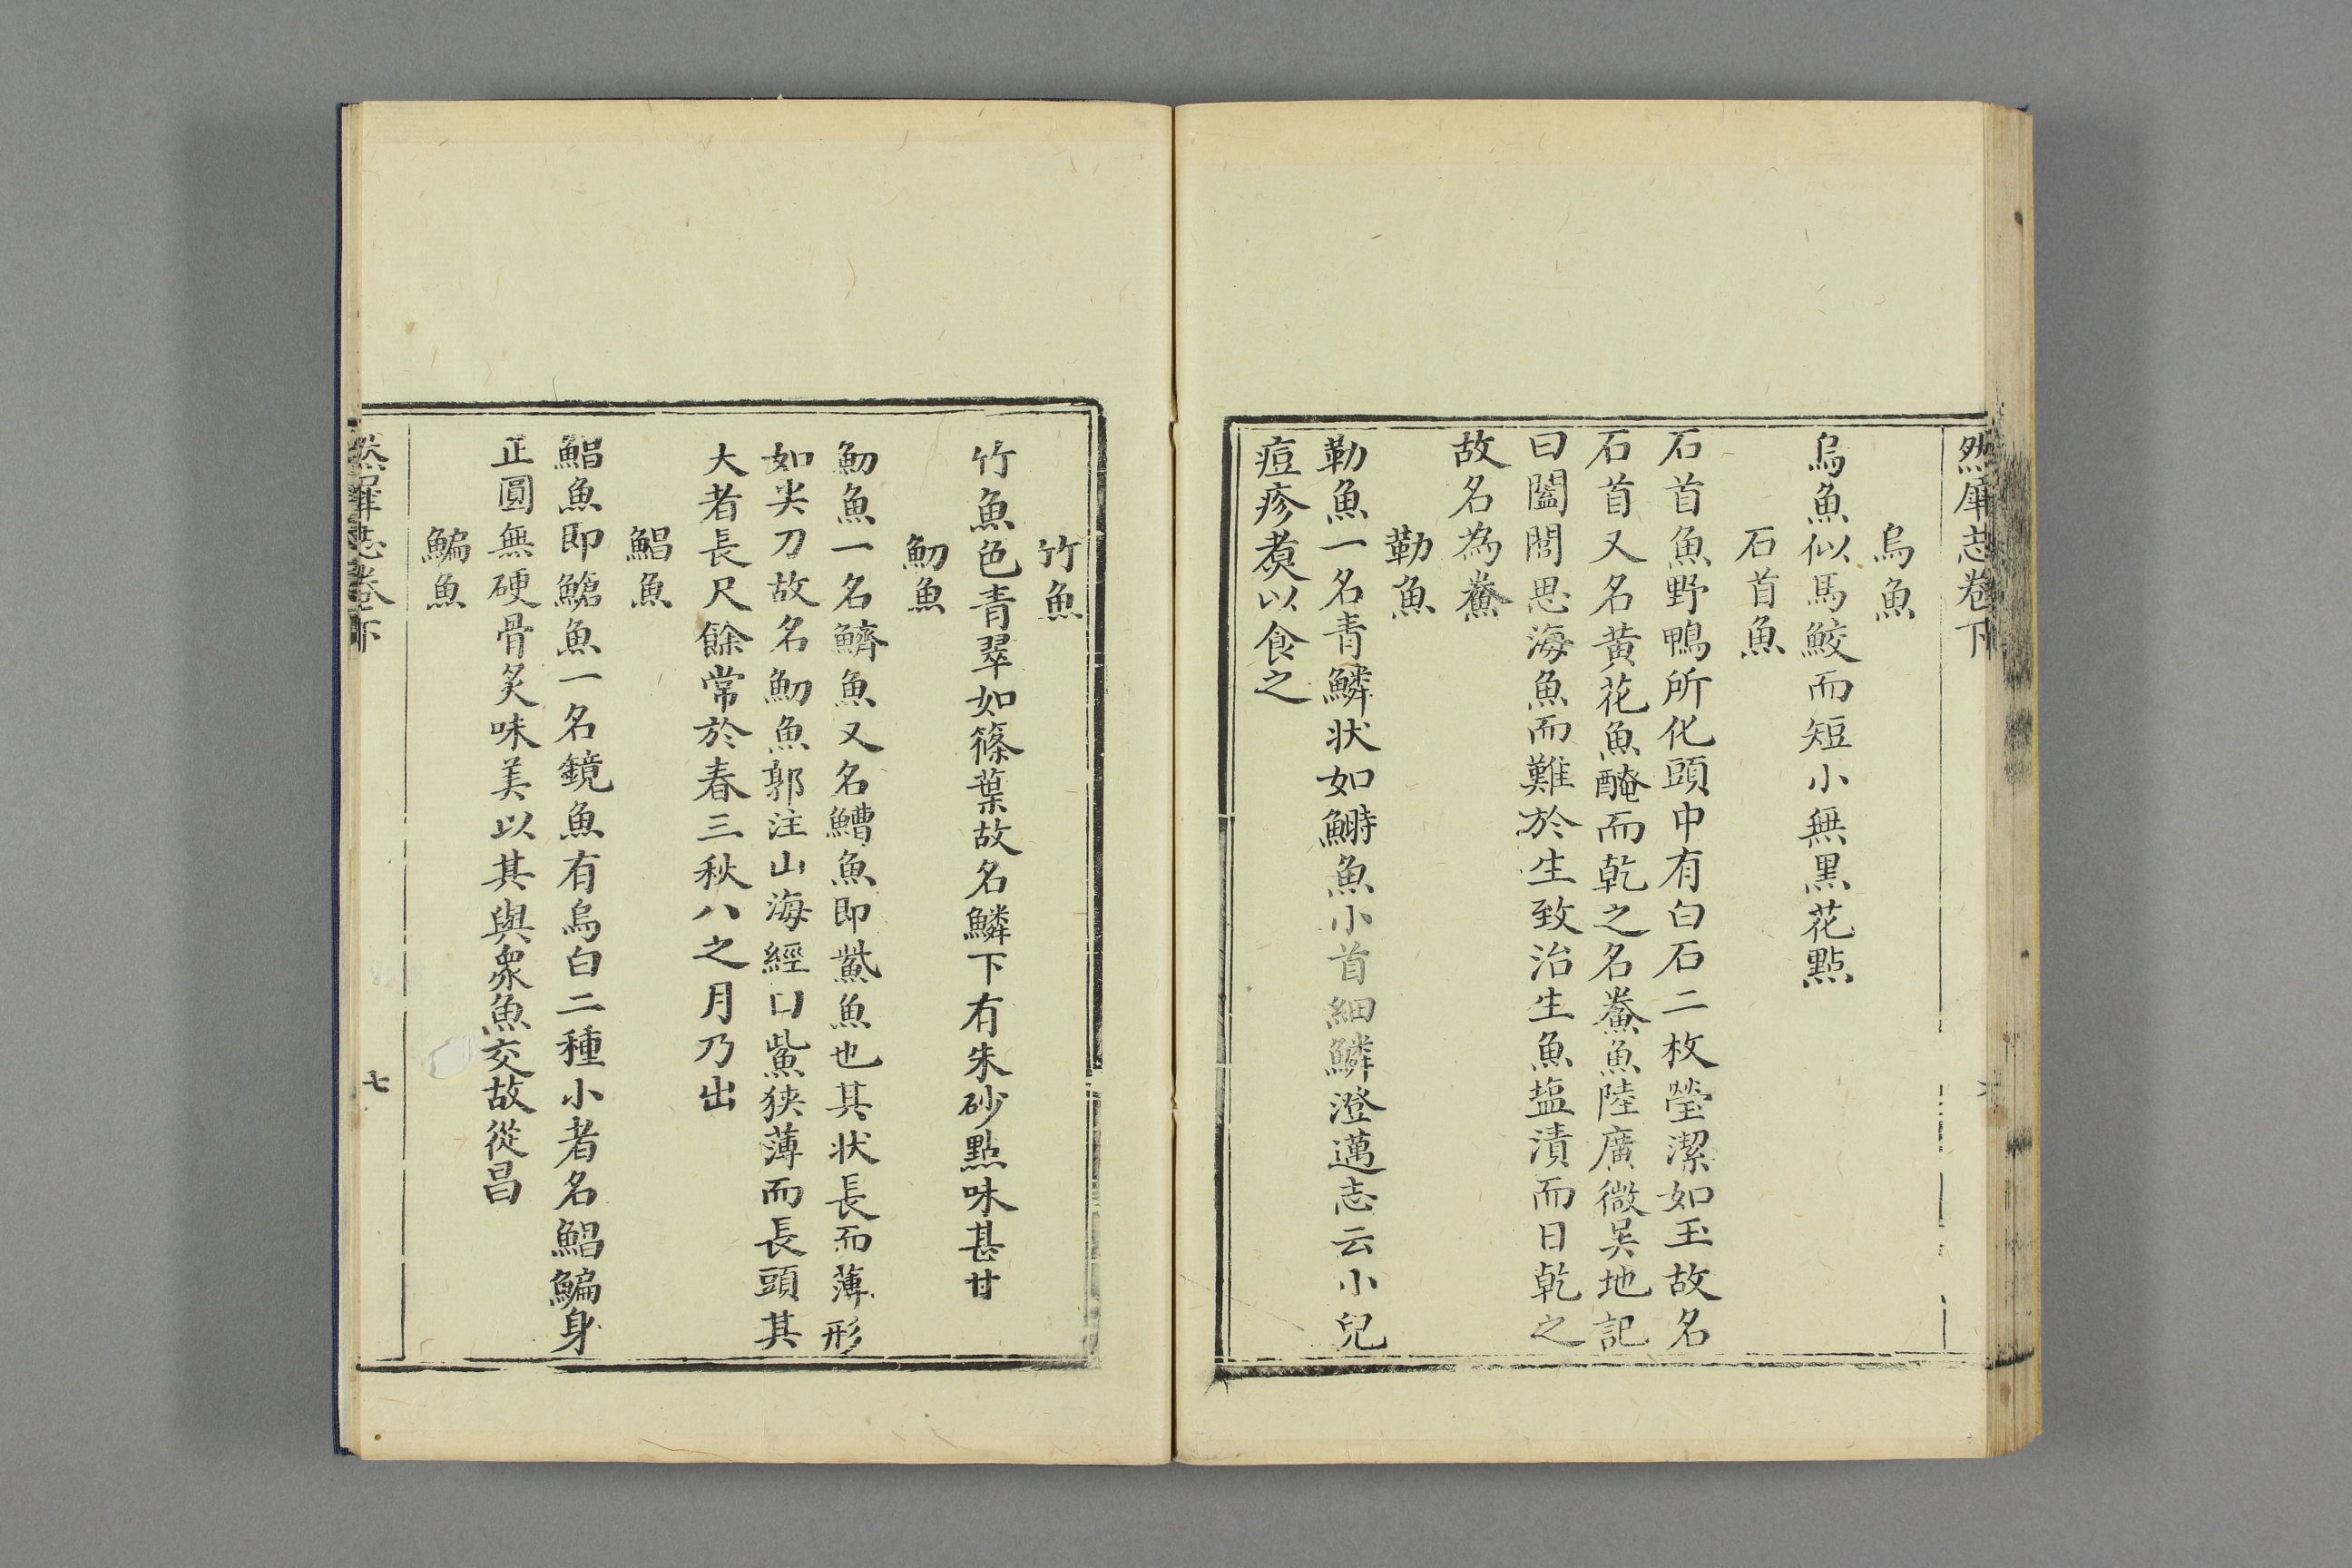 然犀志卷下
烏魚
烏魚似馬鮫而短小無黑花點
石首魚
石首魚野鴨所化頭中有白石二枚瑩潔如玉故名
石首又名黃花魚醃而乾之名鮝魚陸廣微吳地記
曰闔閭思海魚而難於生致治生魚塩漬而日乾之
故名為鮝
勒魚
勒魚一名青鱗状如鰣魚小首細鱗澄邁志云小兒
痘疹煑以食之
竹魚
竹魚色青翠如篠葉故名鱗下有朱砂點味甚甘
魛魚
魛魚一名鱭魚又名鰽魚即鮆魚也其状長而薄形
如尖刀故名魛魚郭注山海經曰鮆狹薄而長頭其
大者長尺餘常於春三秋八之月乃出
鯧魚
鯧魚即鶬魚一名鏡魚有烏白二種小者名鯧鯿身
正圓無硬骨炙味美以其與衆魚交故從昌
鯿魚
然犀志卷下
七